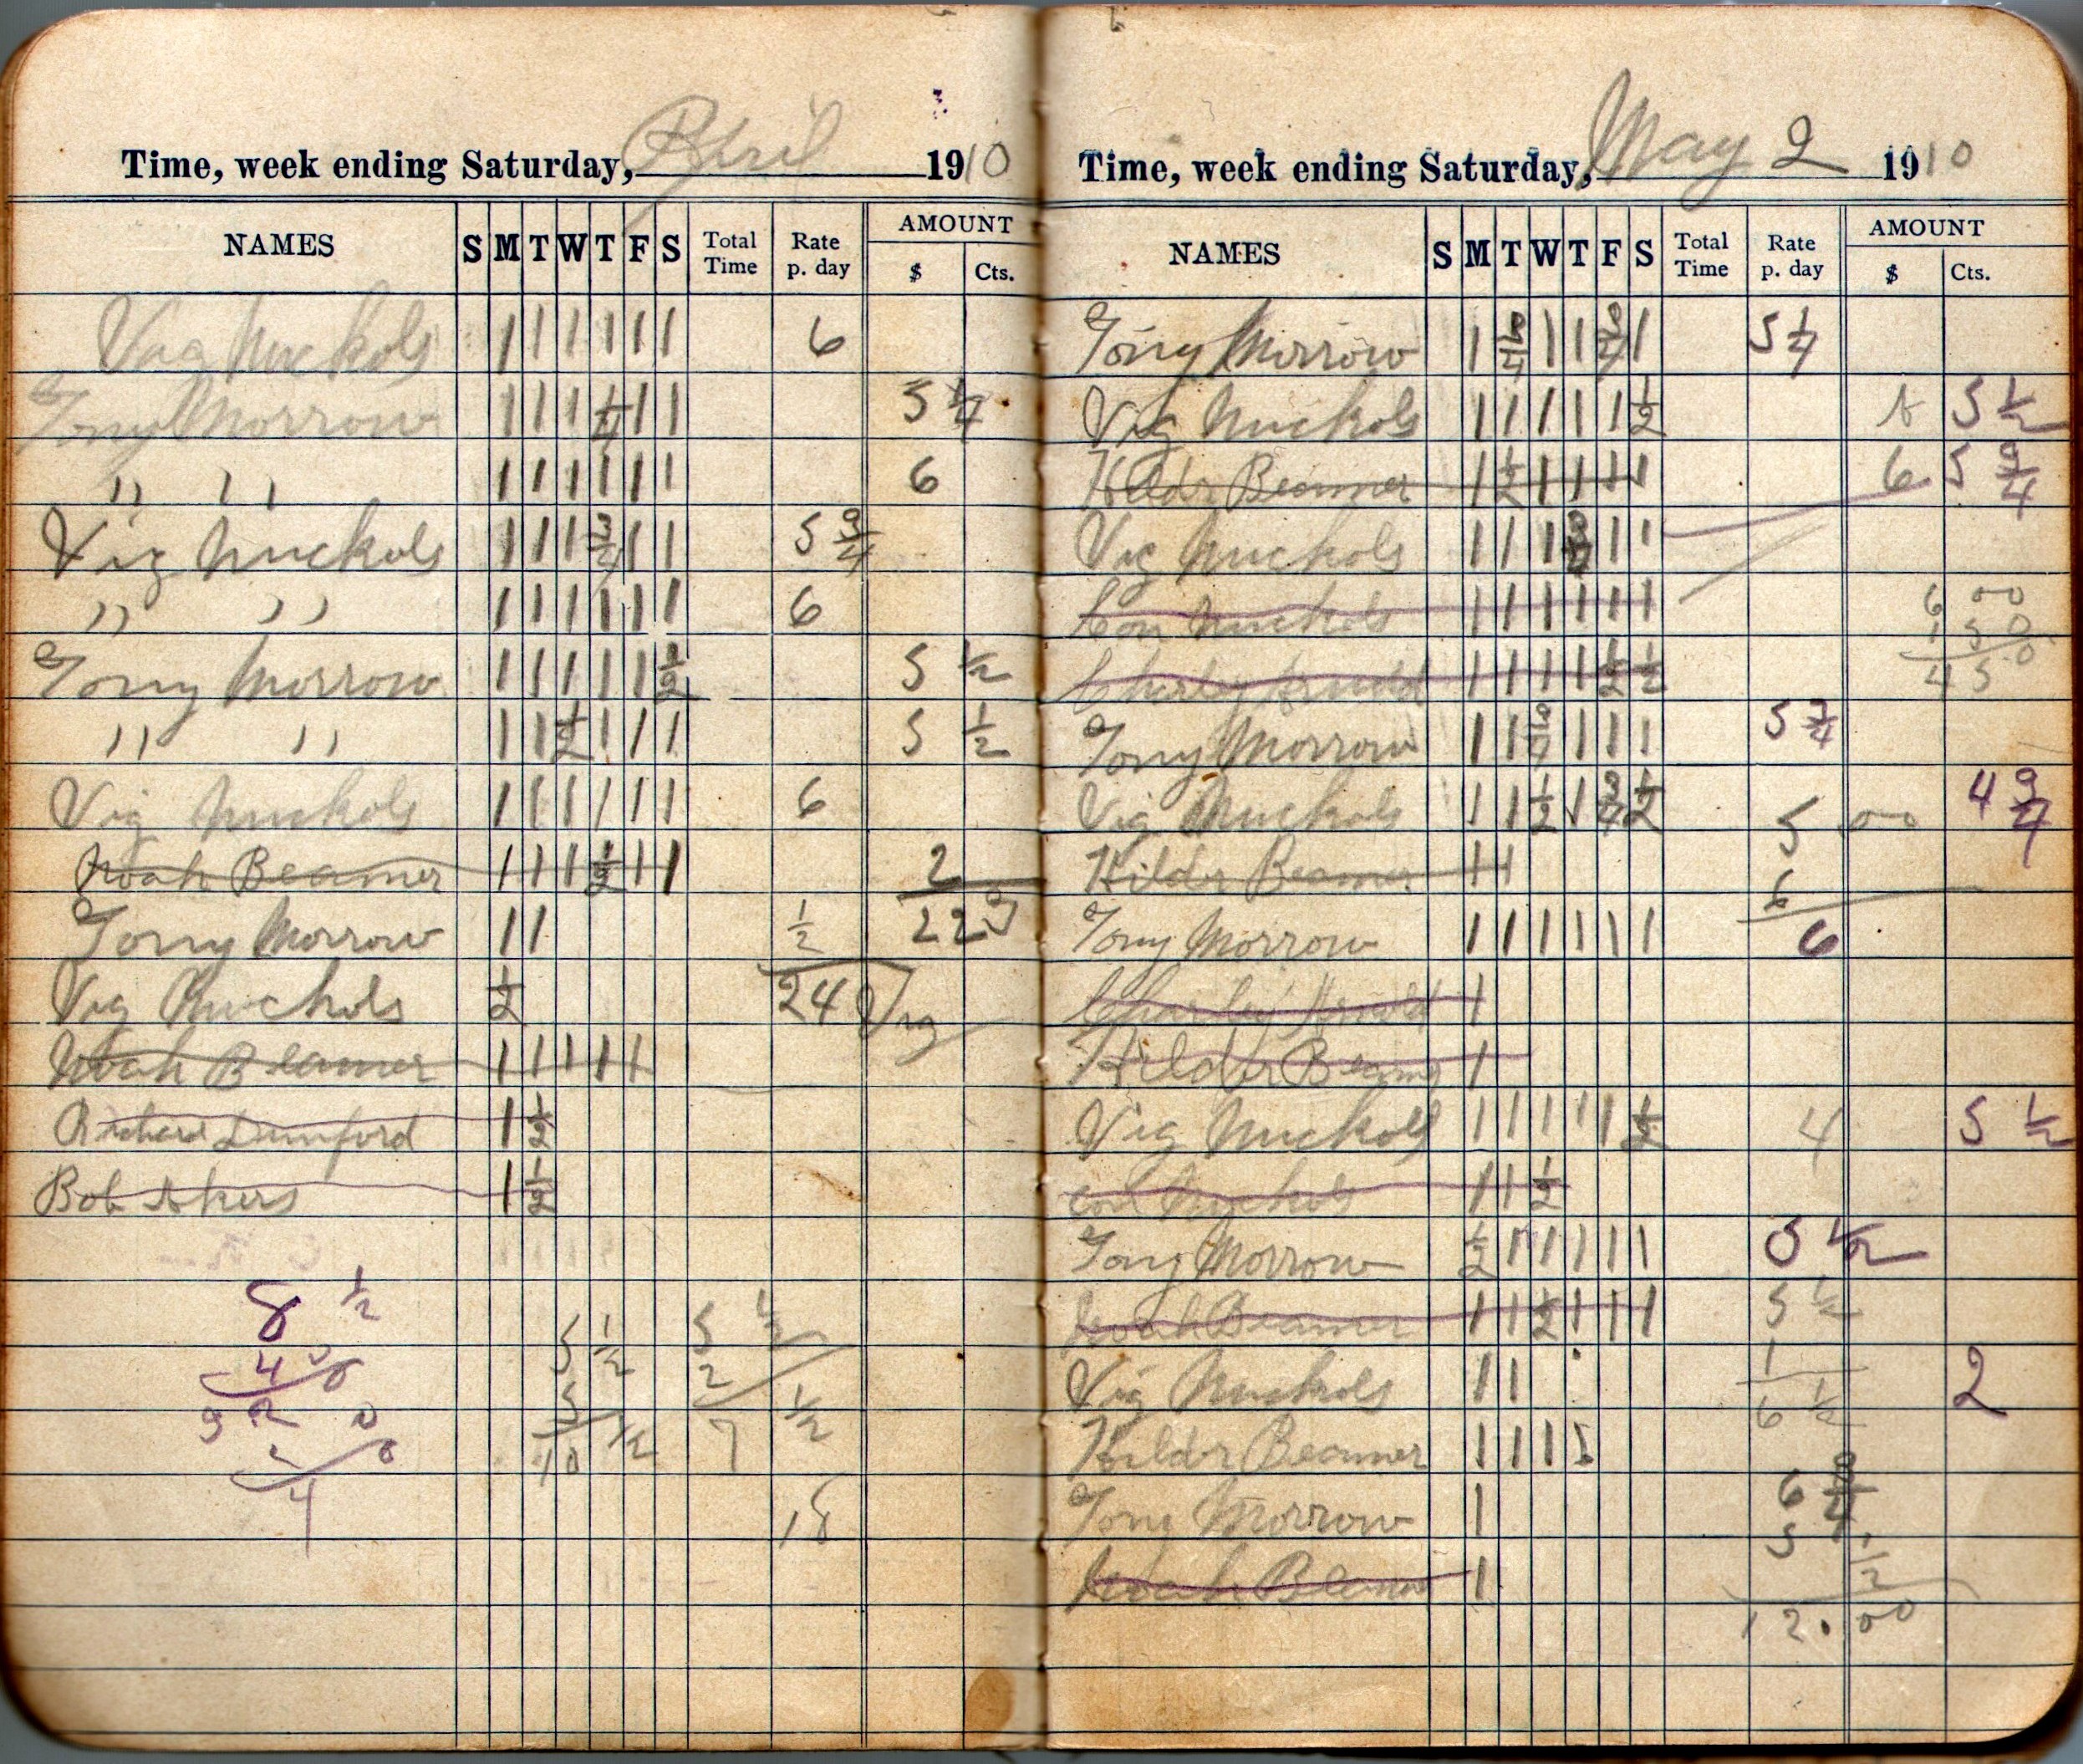 Time, week ending Saturday, April 1910
NAMES S M T W T F S Total Time Rate p. day AMOUNT $ Cts.
Vig Nuckols 1 1 1 1 1 1 6
Tony Morrow 1 1 1 1/4 1 1 5 1/4
" " 1 1 1 1 1 1 6
Vig Nuckols 1 1 1 3/4 1 1 5 3/4
" " 1 1 1 1 1 1 6
Tony Morrow 1 1 1 1 1 1/2 5 1/2
" " 1 1 1/2 1 1 1 5 1/2
Vig Nuckols 1 1 1 1 1 1 6
Noah Beamer 1 1 1 1/2 1 1 2
Tony Morrow 1 1 1/2 22
Vig Nuckols 1/2 24 Vig
Noah Beamer 1 1 1 1 1
Richard Dunford 1 1/2
Bob Akers 1 1/2
8 1/2
5 1/2 5 1/2
4
5 2
10 1/2 7 1/2
4
18
Time, week ending Saturday, May 2 1910
NAMES S M T W T F S Total Time Rate p. day AMOUNT $ Cts.
Tony Morrow 1 3/4 1 1 3/4 1 5 1/4
Vig Nuckols 1 1 1 1 1 1/2 5 1/2
Hilder Beamer 1 1/2 1 1 1 1 6 5 3/4
Vig Nuckols 1 1 1 3/4 1 1
Con Nuckols 1 1 1 1 1 1 6 00
1 50
4 50
Charley Arnold 1 1 1 1 1/2 1/2
Tony Morrow 1 1 3/4 1 1 1 5 3/4
Vig Nuckols 1 1 1/2 1 3/4 1/2 5 00 4 3/4
Hilder Beamer 1 1
6
Tony Morrow 1 1 1 1 1 1 6
Charley Arnold 1
Hilder Beamer 1
Vig Nuckols 1 1 1 1 1 1/2 4 5 1/2
Con Nuckols 1 1 1/2
Tony Morrow 1/2 1 1 1 1 1 5 1/2
Noah Beamer 1 1 1/2 1 1 1 5 1/2
Vig Nuckols 1 1 1 2
6 1/2
Hilder Beamer 1 1 1 1
Tony Morrow 1 6 3/4
5 1/2
Noah Beamer 1
12.00